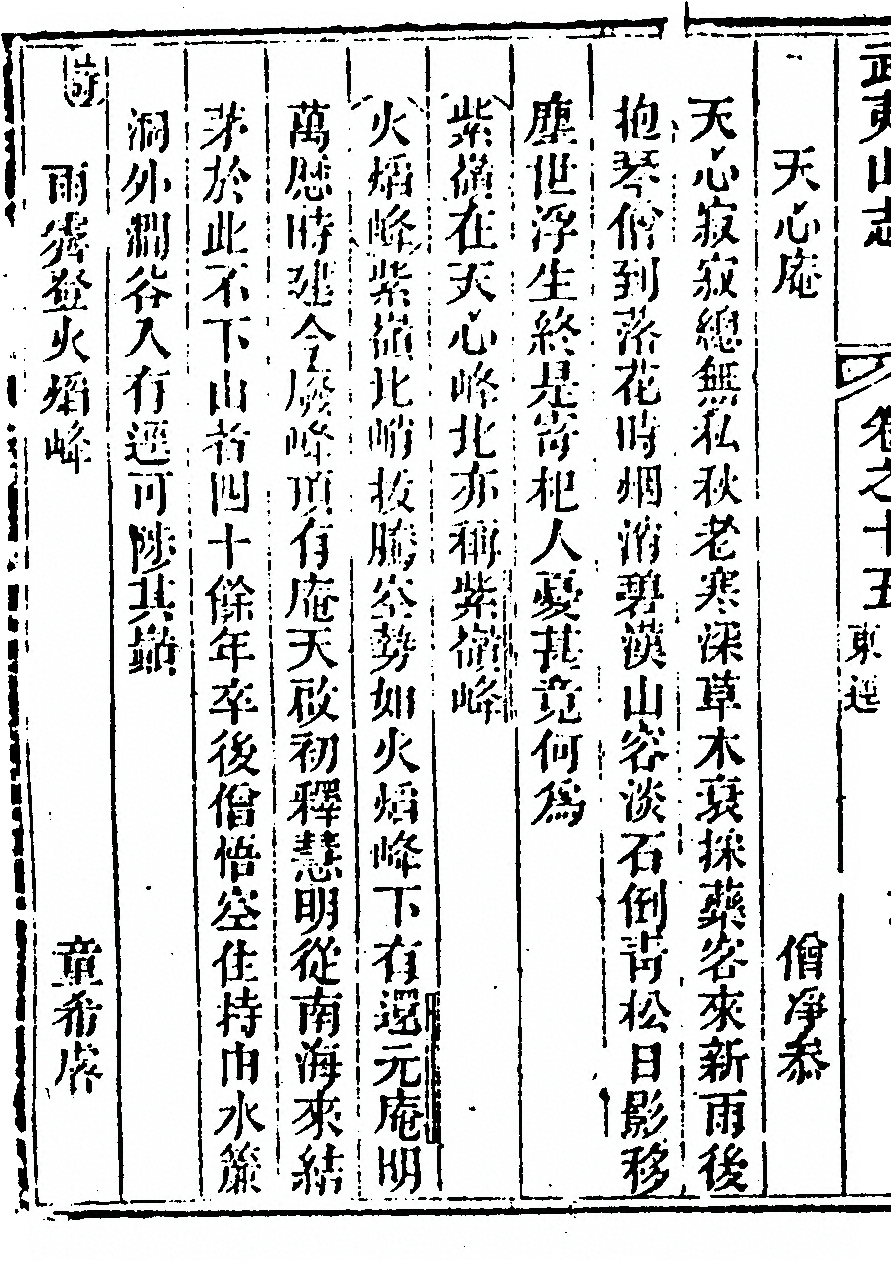 武夷山志 卷之十五 東
天心庵 僧淨泰
天心寂寂總無私秋老寒深草木衰採藥客來新雨後
抱琴僧到落花時烟消碧漢山容淡石倒青松日影移
塵世浮生終是寄杞人憂甚竟何爲
紫嶺在天心峰北亦稱紫嶺峰
火焰峰紫嶺北峭拔騰空勢如火焰峰下有還元庵明
萬歷時建今廢峰頂有庵天啟初釋慧明從南海來結
茅於此不下山者四十餘年卒後僧悟空住持由水簾
洞外澗谷入有逕可陟其巔
詩 雨霽登火焰峰 童希